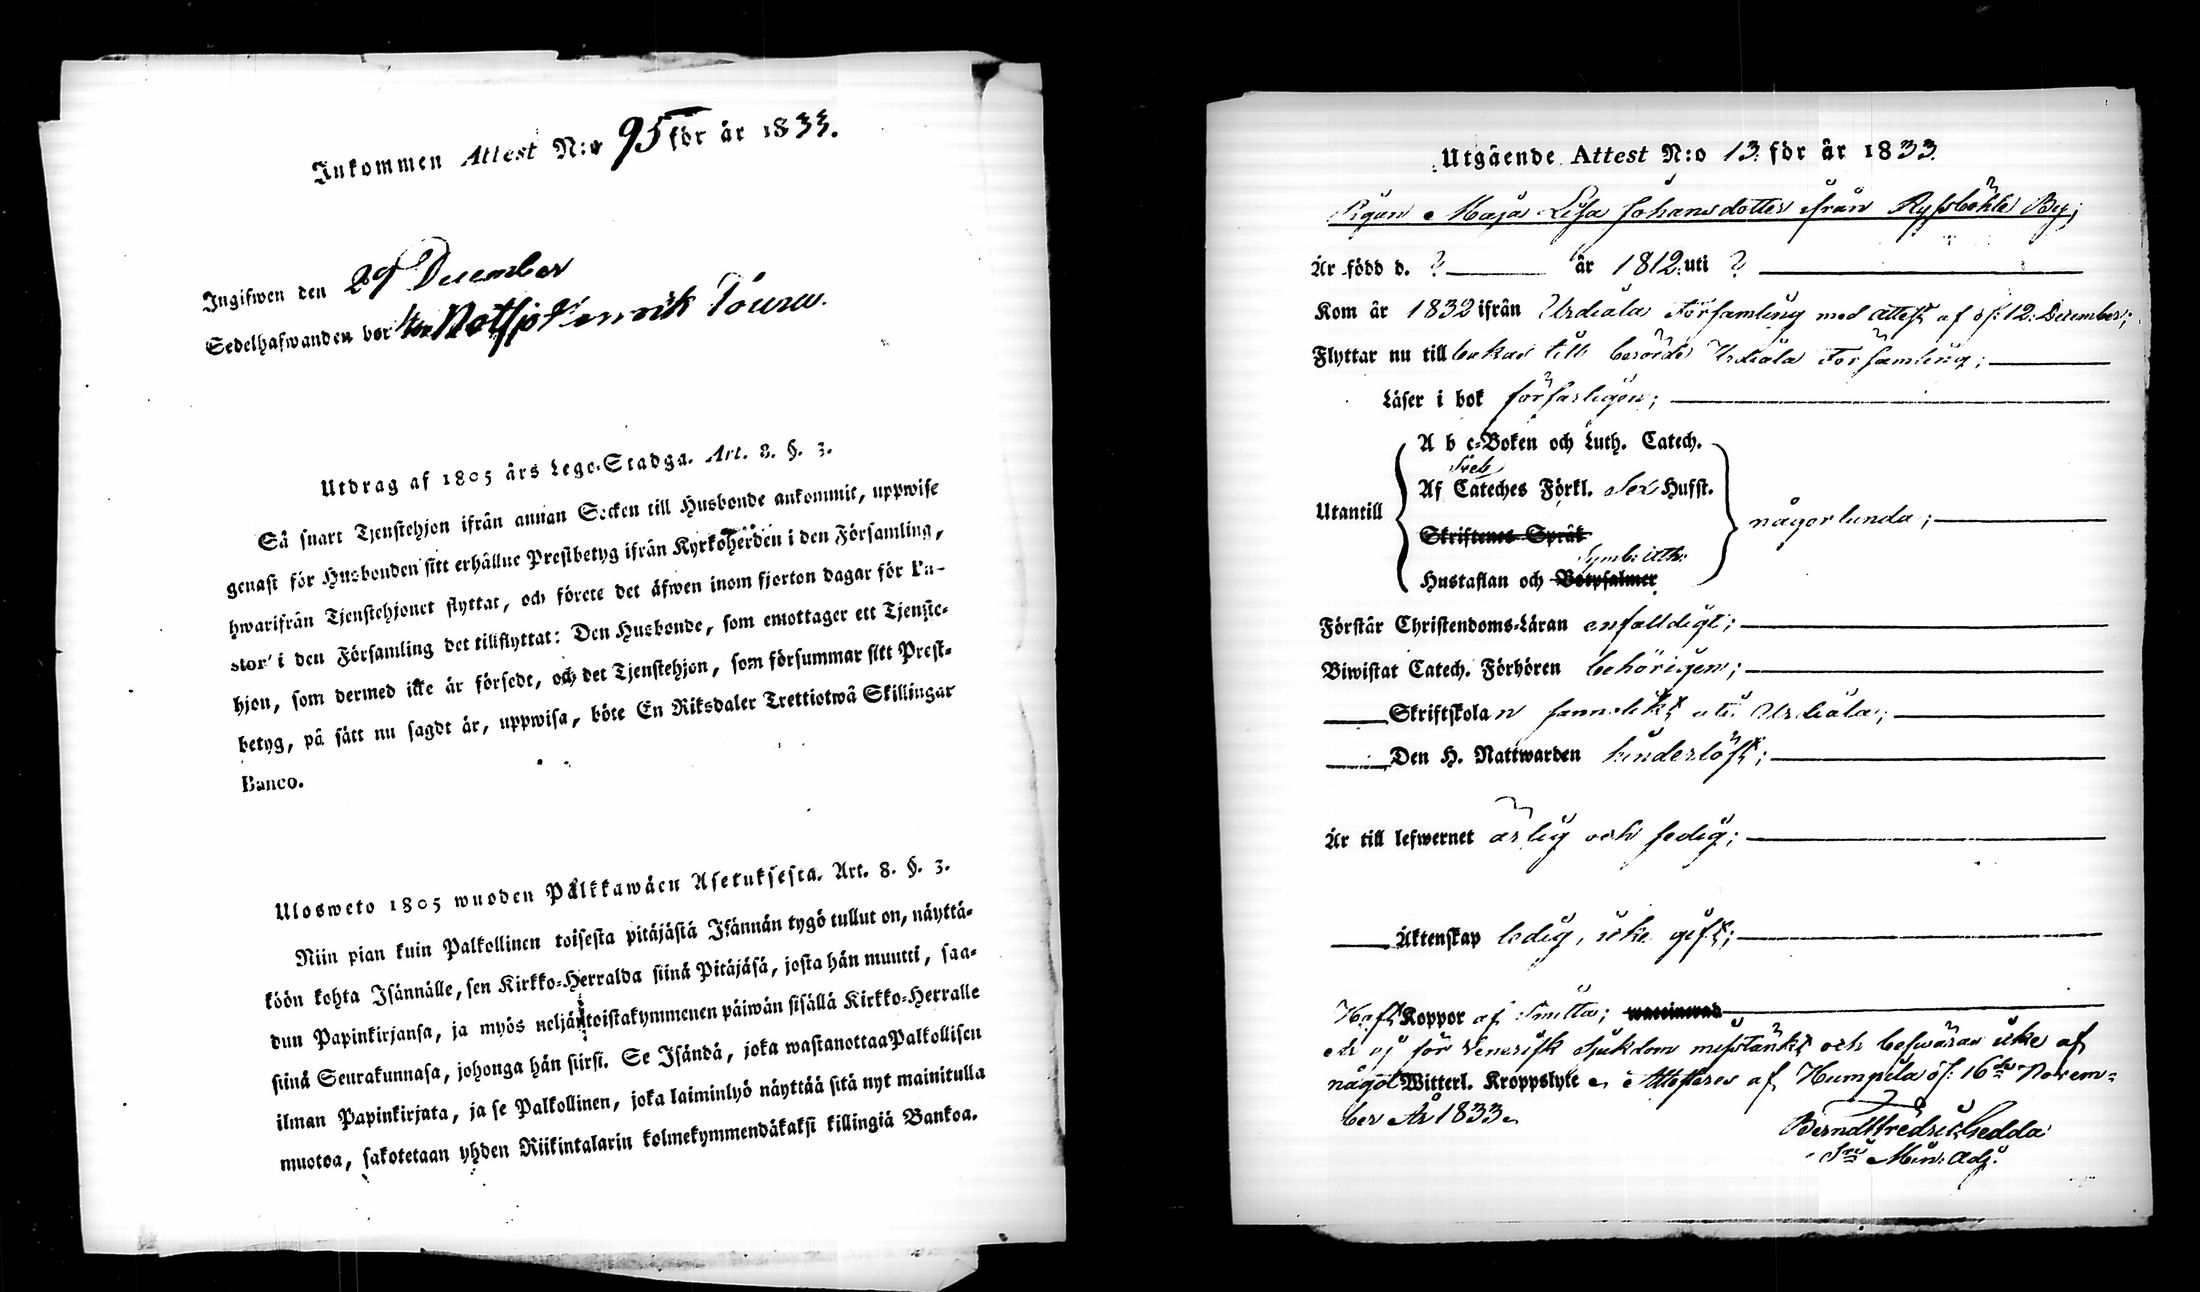 Inkommen Attest N:o 95 för år 1833.
Ingifwen den 29 December
Sedelhafwanden bor
Utdrag af 1805 års Lego-Stadga. Art. 8. §. 3.
Så snart Tjenstehjon ifrån annan Socken till Husbonde ankommit, uppwise
genast för Husbonden sitt erhållne Prestbetyg ifrån Kyrkoherden i den Församling,
hwarifrån Tjenstehjonet flyttat, och förete det äfwen inom fjorton dagar för Pa-
stor i den Församling det tillflyttat: Den Husbonde, som emottager ett Tjenste-
hjon, som dermed icke är försedt, och det Tjenstehjon, som försummar sitt Prest-
betyg, på sätt nu sagdt är, uppwisa, böte En Riksdaler Trettiotwå Skillingar
Banco.
Ulosweto 1805 wuoden Palkkawäen Asetuksesta. Art. 8. §. 3.
Niin pian kuin Palkollinen toisesta pitäjästä Isännän tygö tullut on, näyttä-
köön kohta Isännälle, sen Kirkko-Herralda siinä Pitäjäsä, josta hän muutti, saa-
dun Papinkirjansa, ja myös neljäntoistakymmenen päiwän sisällä Kirkko-Herralle
siinä Seurakunnasa, johonga hän siirsi. Se Isändä, joka wastanottaa Palkollisen
ilman Papinkirjata, ja se Palkollinen, joka laiminlyö näyttää sitä nyt mainitulla
muotoa, sakotetaan yhden Riikintalarin kolmekymmendäkaksi killingiä Bankoa.
Utgående Attest N:o 13. för år 1833.
Pigan Maja Lisa Johansdotter ifrån Ryssböhle By;
Är född d. ? år 1812. uti ?
Kom år 1832 ifrån Urdiala Församling med attest af d: 12. December;
Flyttar nu till bakas till berörde Urdiala Församling;
Läser i bok försarligen;
A b c-Boken och Luth. Catech.
Sveb
Af Cateches Förkl. Sex Hufst.
Utantill någorlunda;
Skriftenes Språk
Symb: Ath:
Hustaflan och Botpsalmer
Förstår Christendoms-Läran enfalldigt;
Biwistat Catech. Förhören behörigen;
Skriftskolan samt uti Urdiala;
Den H. Nattwarden hinderlöst;
Är till lefwernet ärlig och sedig;
Äktenskap ledig, icke gift;
Haft Koppor af Smitta; waccinerad
är ej för Venerisk sjukdom misstänkt och beswäras icke af
något Witterl. Kroppslyte. Attesteres af Humpila d: 16de Novem-
ber År 1833.
Berndt Fredric Hedda
Sve Min: Adj.